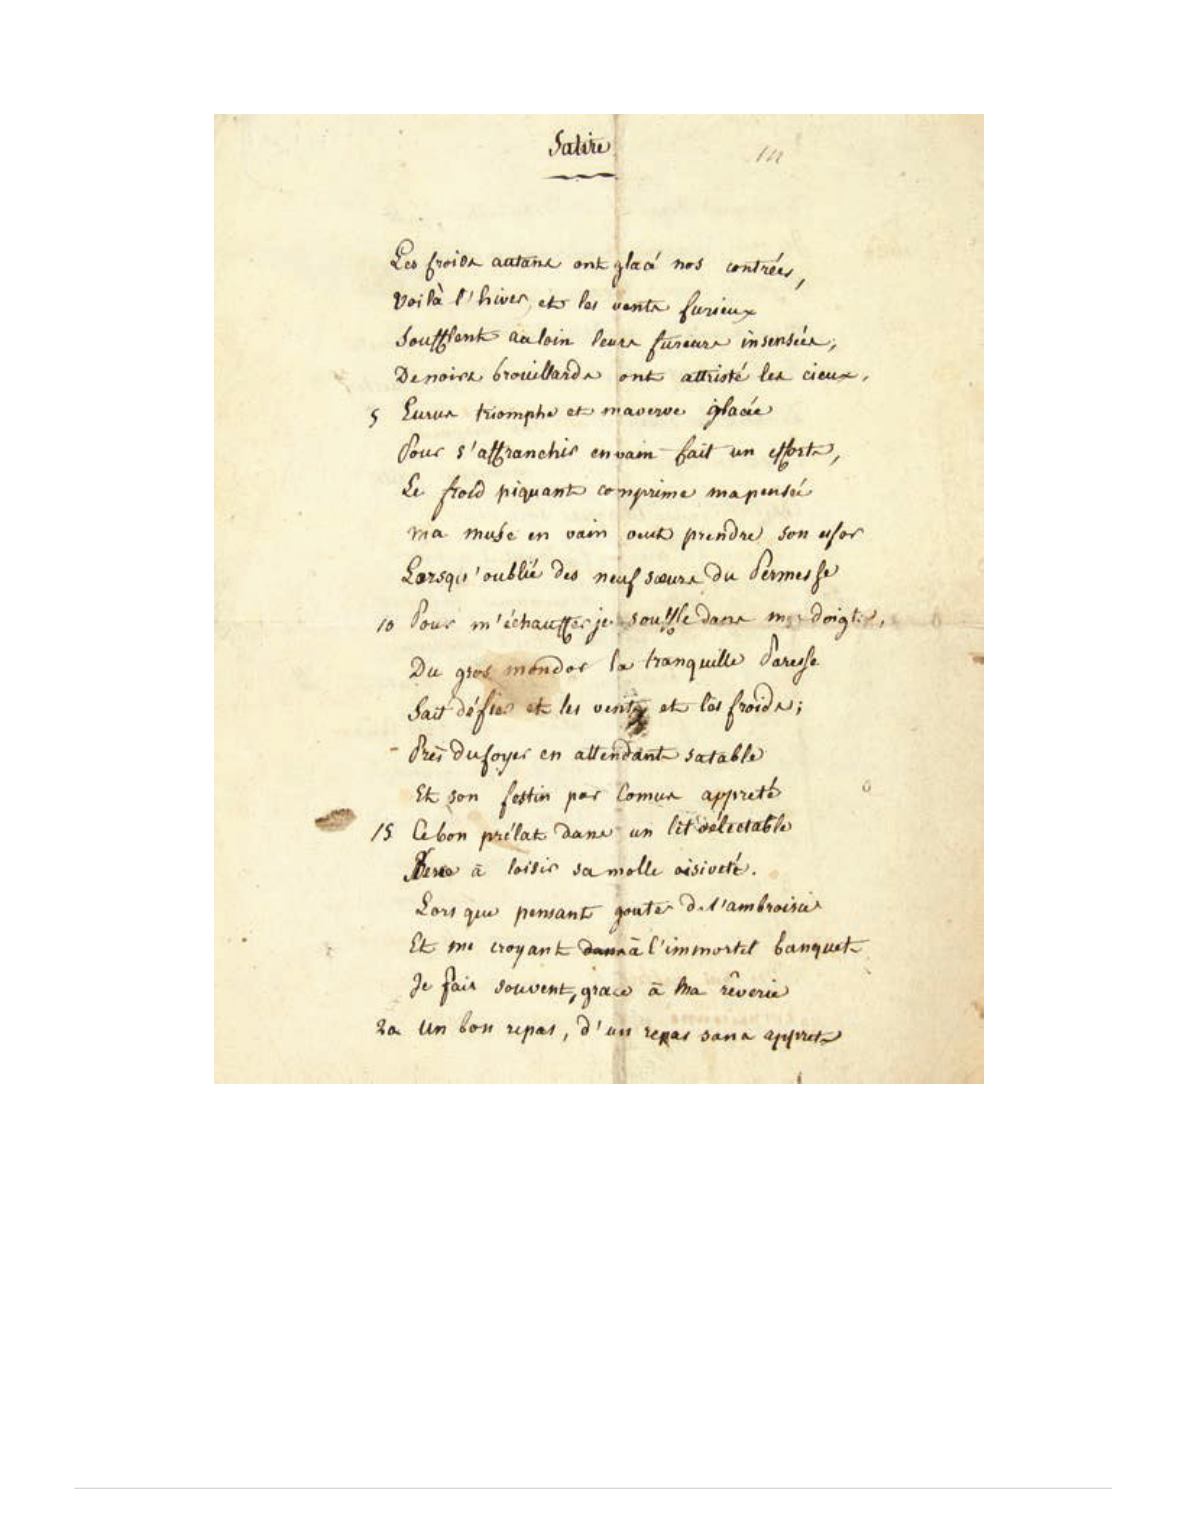 Satire
Les froids autans ont glacé nos contrées,
Voilà l'hiver, et les vents furieux
Soufflent au loin leurs fureurs insensées;
De noirs brouillards ont attristé les cieux,
5 Eurus triomphe et ma verve glacée
Pour s'affranchir en vain fait un efforts,
Le froid piquant comprime ma pensée
ma muse en vain veut prendre son essor
Lorsqu'oublié des neuf sœurs du Permesse
10 Pour m'échauffer je souffle dans mes doigts,
Du gros mondor la tranquille Paresse
Sait défier et les vents et les froids;
Près du foyer en attendant sa table
Et son festin par Comus appreté
15 Ce bon prélat dans un lit délectable
à loisir sa molle oisiveté.
Lors que pensant gouter de l'ambroisie
Et me croyant dans à l'immortel banquet
Je fais souvent, grace à ma rêverie
20 Un bon repas, d'un repas sans appret